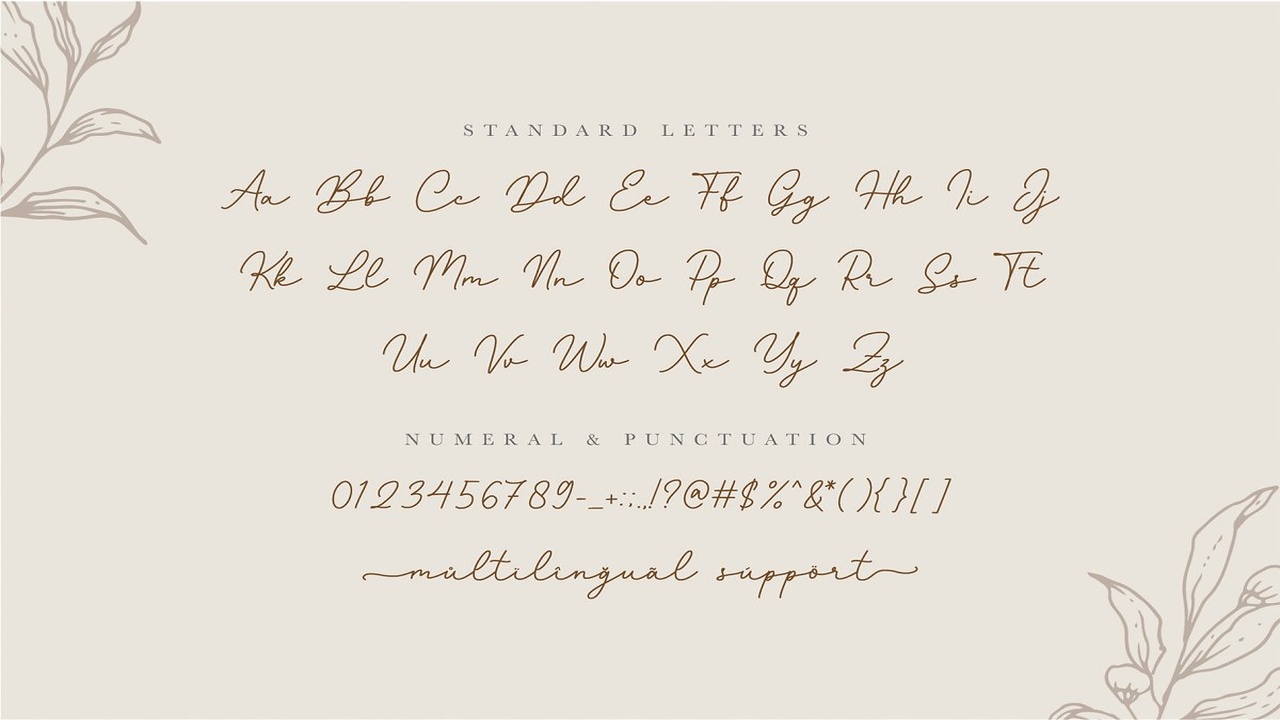 STANDARD LETTERS
Aa Bb Cc Dd Ee Ff Gg Hh Ii Jj
Kk Ll Mm Nn Oo Pp Qq Rr Ss Tt
Uu Vv Ww Xx Yy Zz
NUMERAL & PUNCTUATION
0123456789-_+:;.,!?@#$%^&*(){}[]
můltïlînğuãl súppört